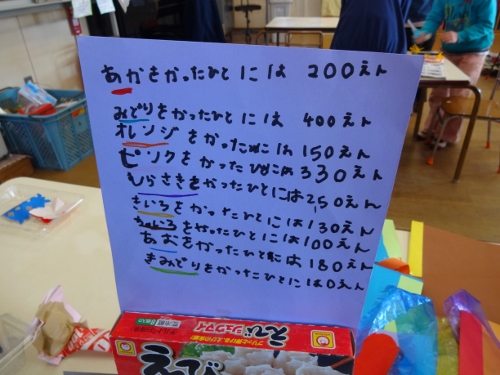 あかをかったひとには 200えん
みどりをかったひとには 400えん
オレンジをかったひとには 150えん
ピンクをかったひとには 330えん
むらさきをかったひとには 250えん
きいろをかったひとには 130えん
ちゃいろをかったひとには 100えん
あおをかったひとには 180えん
きみどりをかったひとには 0えん
えびシュウマイ
えび